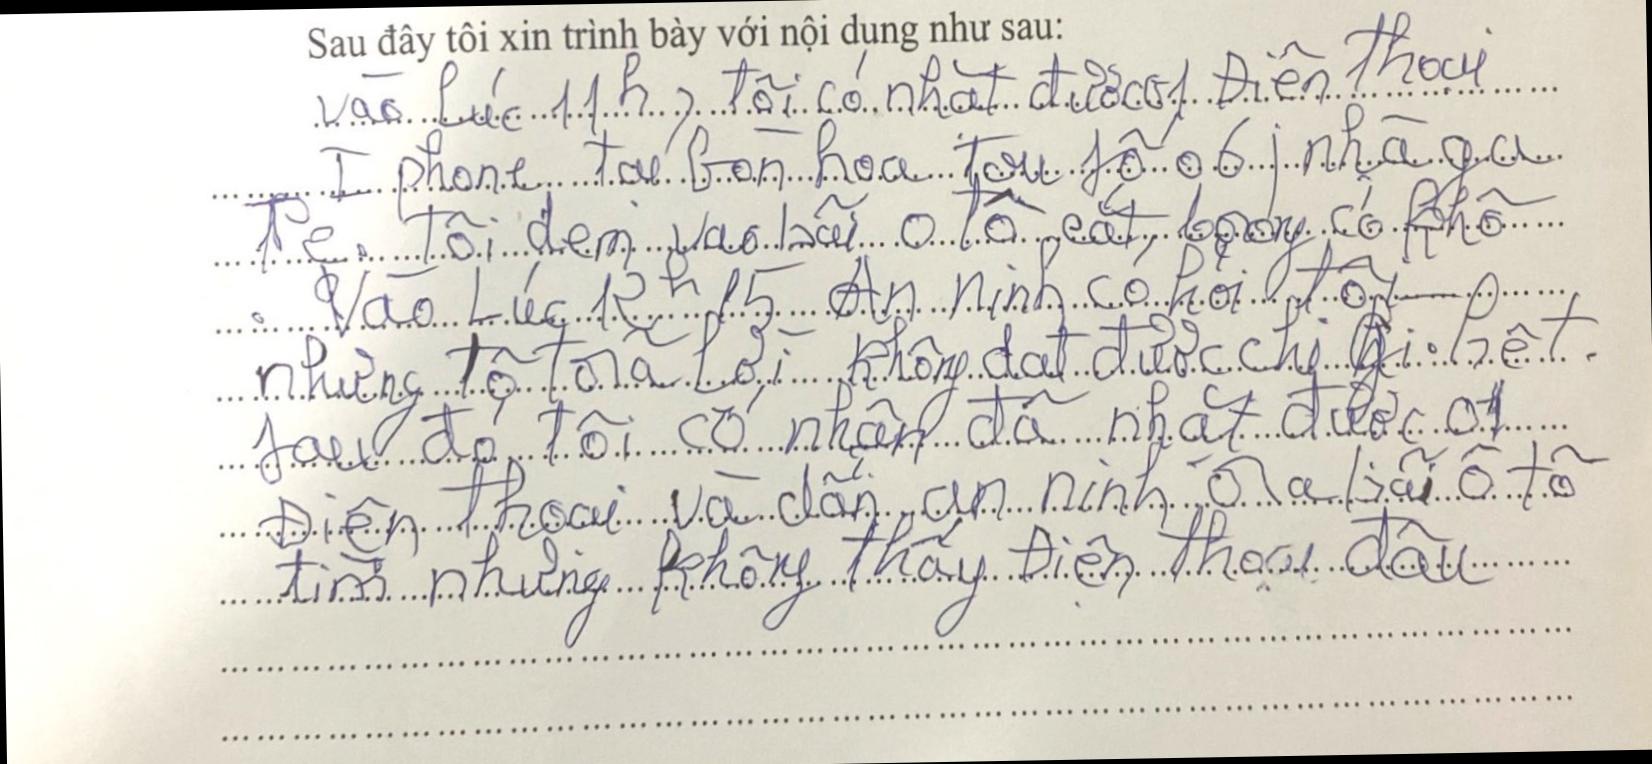 Sau đây tôi xin trình bày với nội dung như sau:
vào lúc 11h, tôi có nhặt được 01 Điện thoại
I phone tại bồn hoa tại số 06 nhà ga
T2. tôi đem vào bãi ô tô cất,
Vào Lúc 12h 15 An ninh có hỏi tôi
nhưng tôi trả lời không đạt được chị gì hết.
sau đó tôi có nhận đã nhặt được 01
Điện thoại và dẫn an ninh ra bãi ô tô
tìm nhưng không thấy Điện thoại đâu